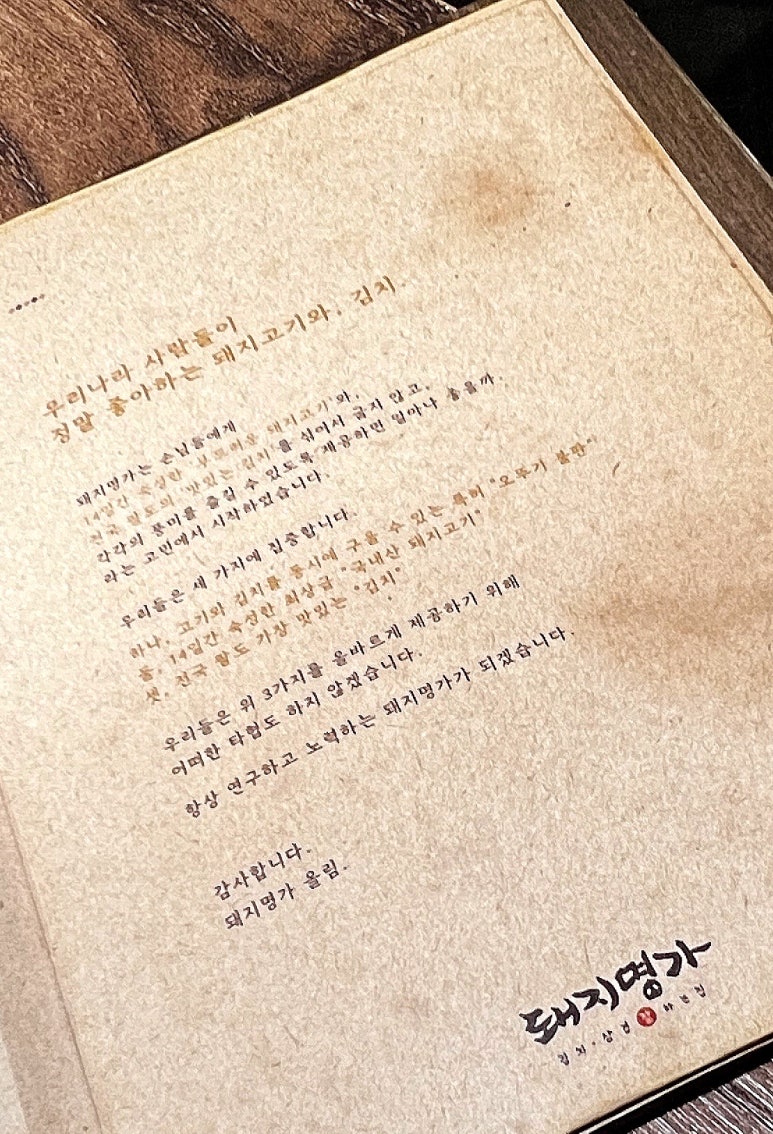 우리나라 사람들이
정말 좋아하는 돼지고기와, 김치.
돼지명가는 손님들에게
14일간 숙성한 '부드러운 돼지고기'와,
전국 팔도의 '맛있는 김치'를 심어서 굽지 않고,
각각의 풍미를 즐길 수 있도록 제공하면 얼마나 좋을까
라는 고민에서 시작하였습니다.
우리들은 세 가지에 집중합니다.
하나, 고기와 김치를 동시에 구울 수 있는 특허 "오뚜기 불판"
둘, 14일간 숙성한 최상급 "국내산 돼지고기"
셋, 전국 팔도 가장 맛있는 "김치"
우리들은 위 3가지를 올바르게 제공하기 위해
어떠한 타협도 하지 않겠습니다.
항상 연구하고 노력하는 돼지명가가 되겠습니다.
감사합니다.
돼지명가 올림.
돼지명가
김치·삼겹 잘 하는집